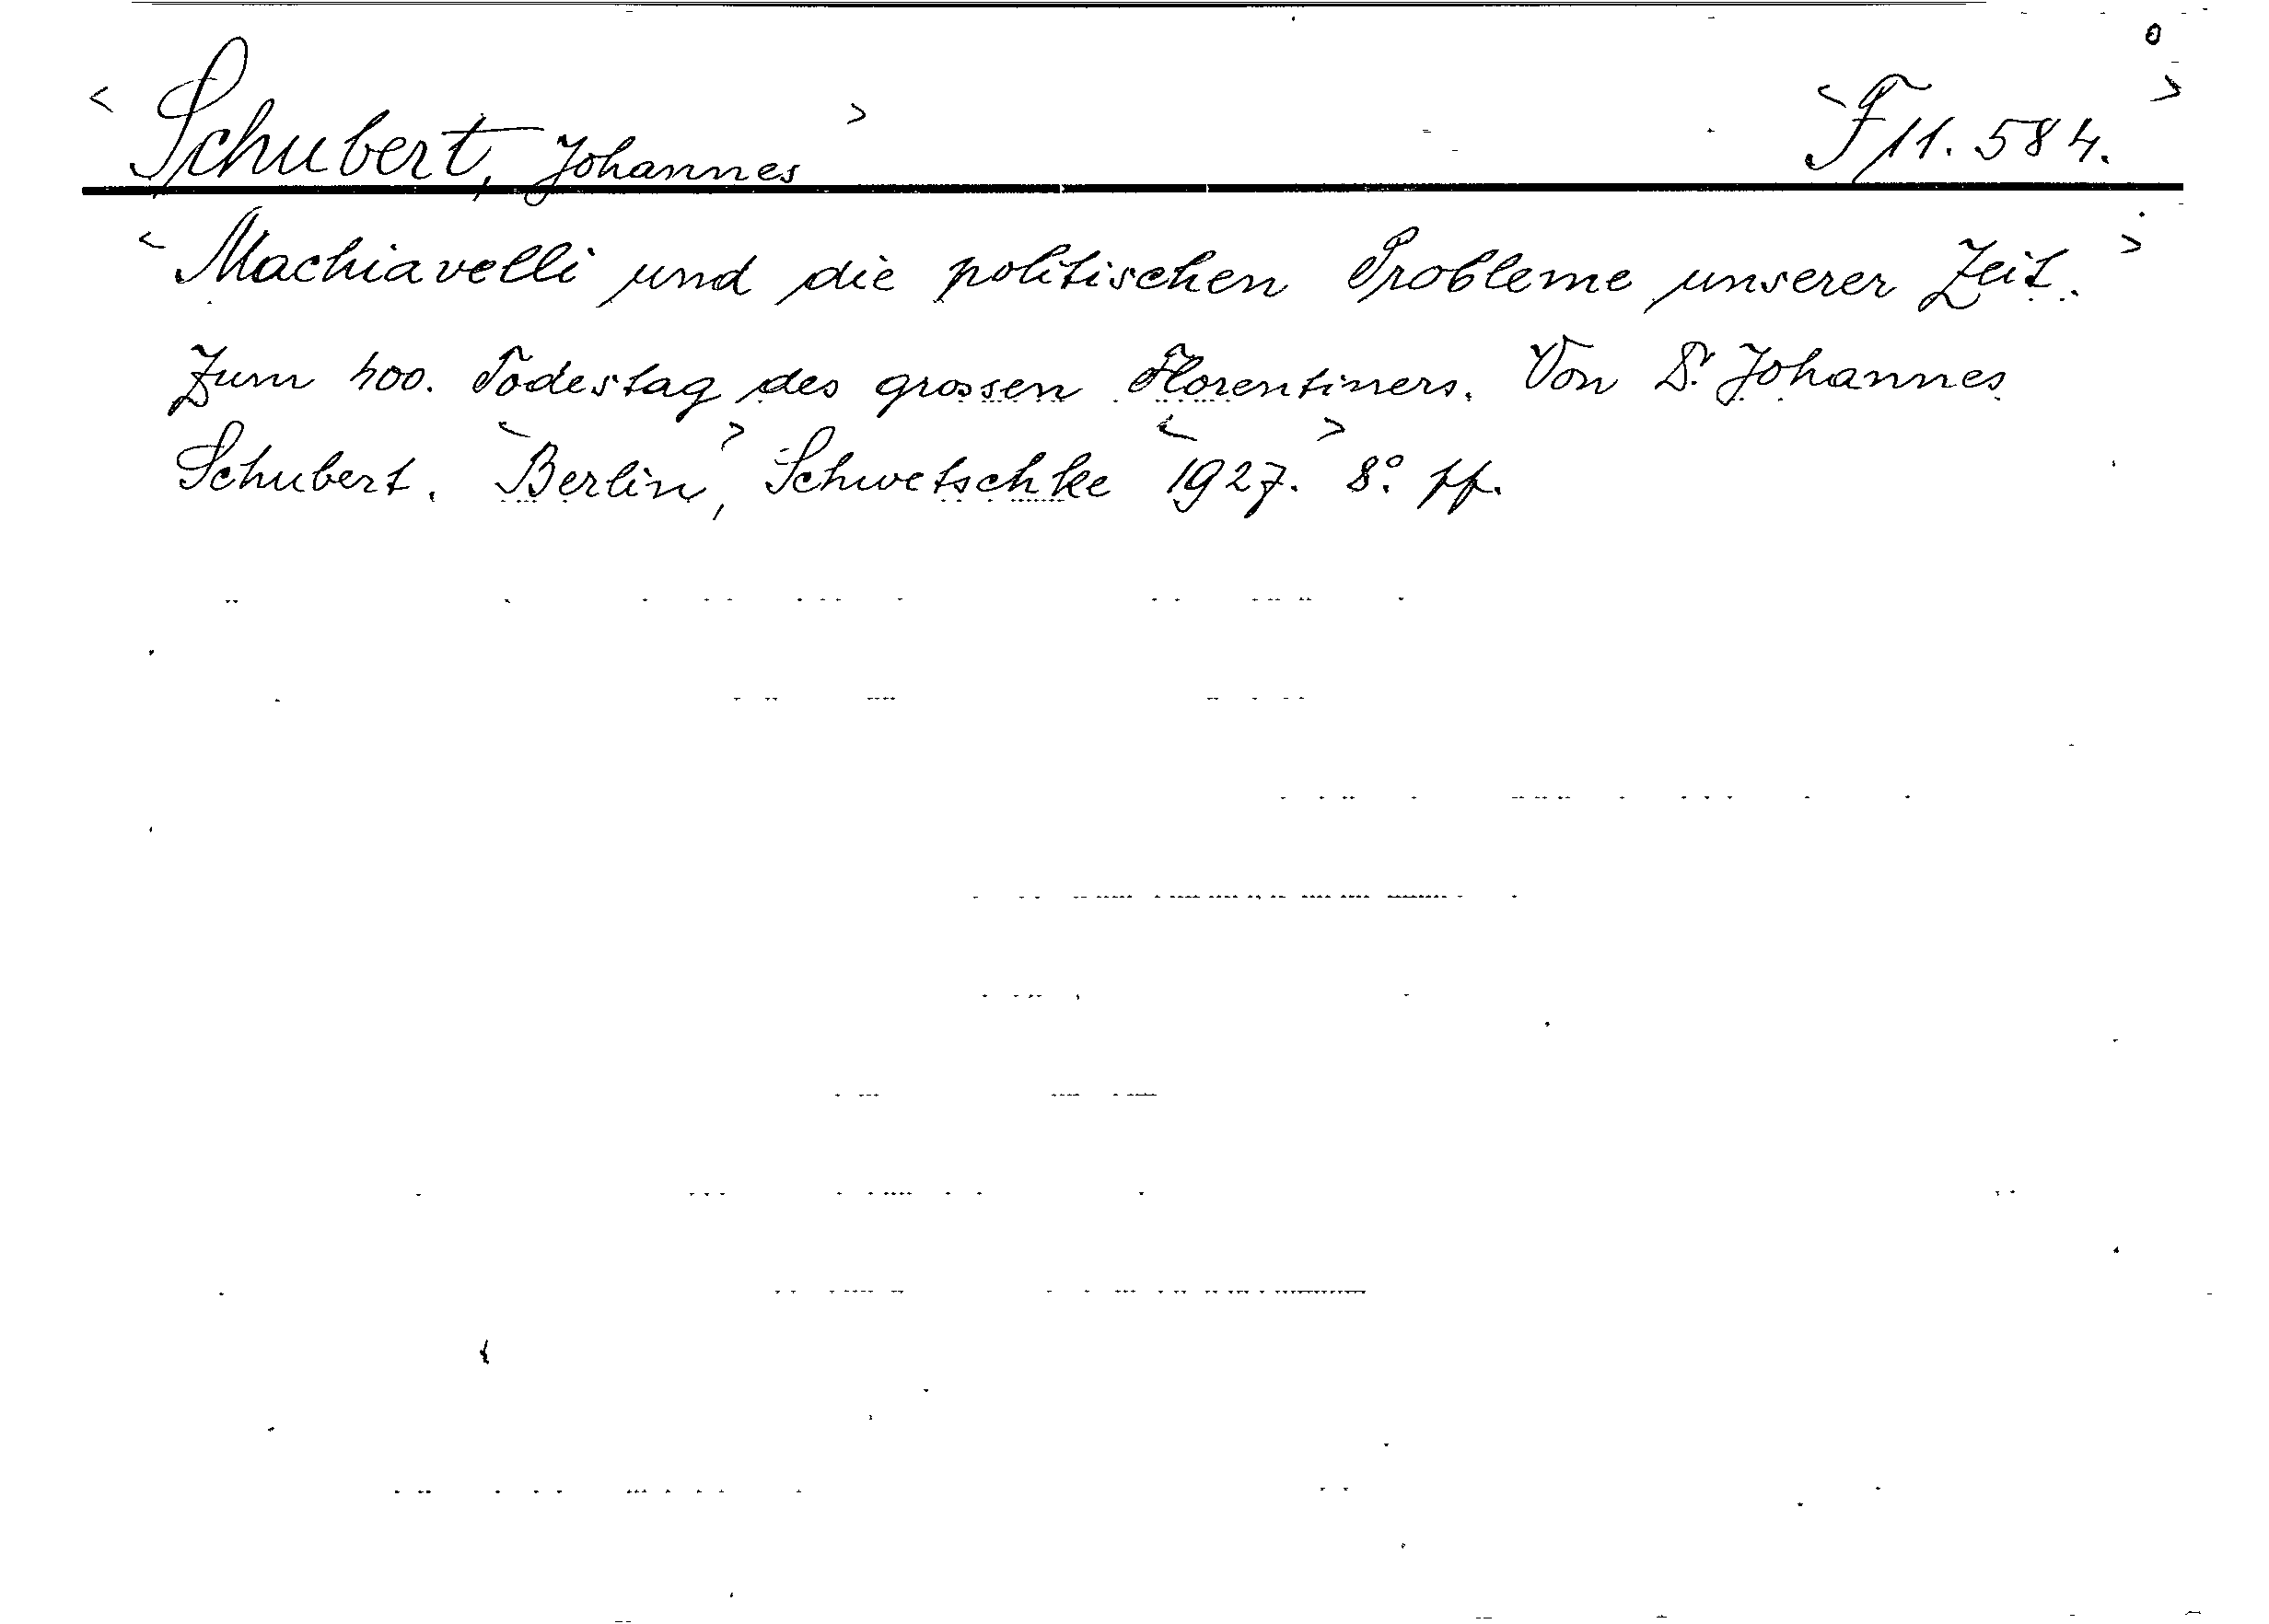 < Schubert, Johannes > < F 11.584. >
< Machiavelli und die politischen Probleme unserer Zeit. >
Zum 400. Todestag des grossen Florentiners. Von Dr. Johannes
Schubert. < Berlin, > Schwetschke < 1927. > 8°. pp.